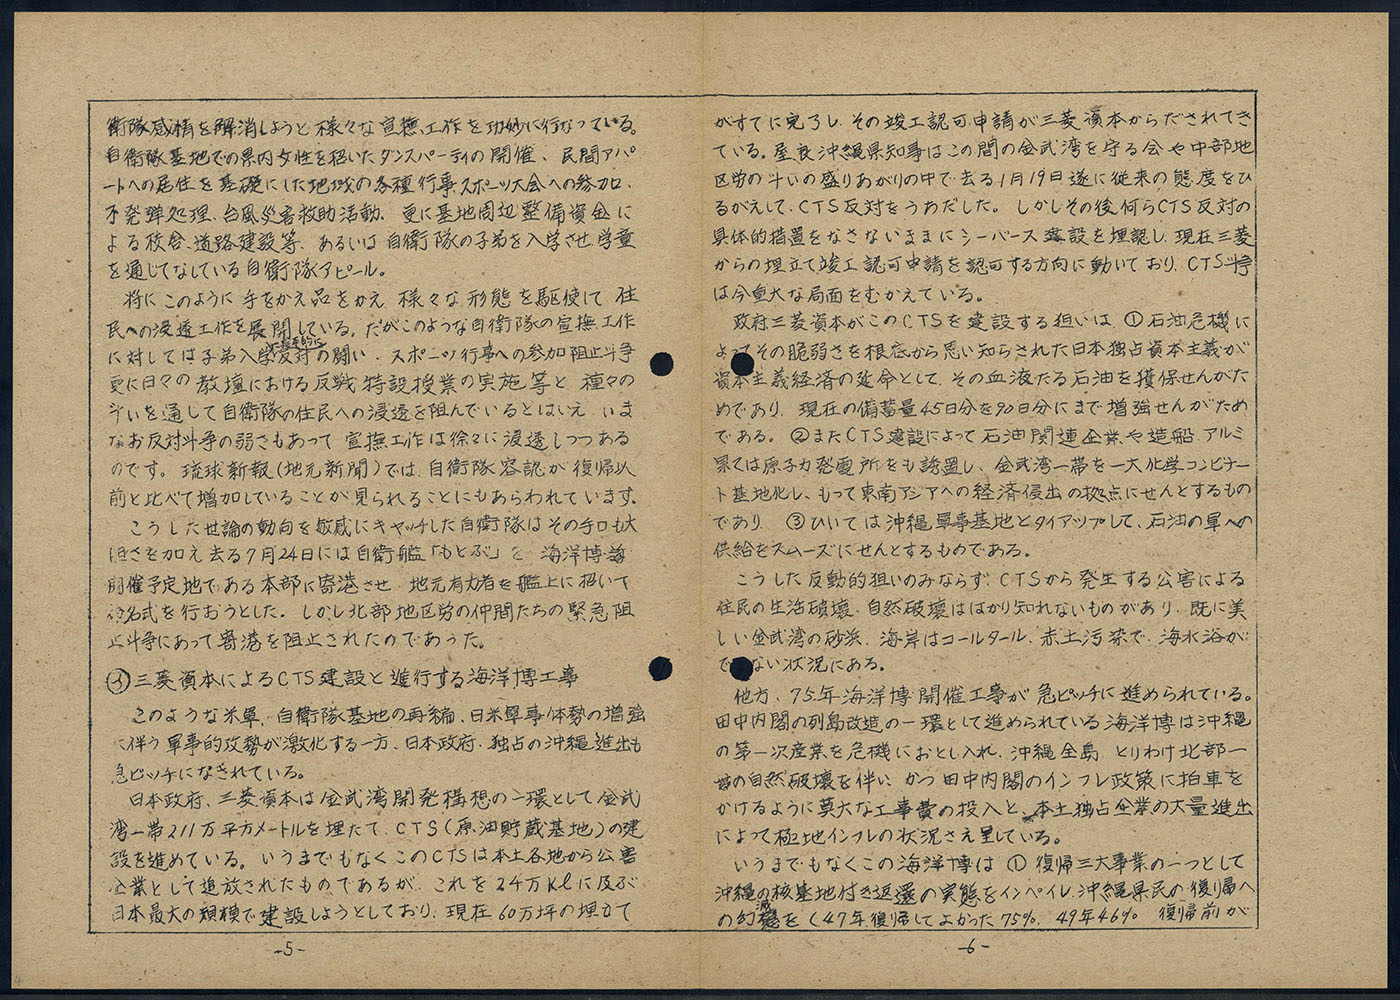 衛隊感情を解消しようと様々な宣撫工作を功妙に行なっている。
自衛隊基地での県内女性を招いたダンスパーティの開催、民間アパ
ートへの居住を基礎にした地域の各種行事スポーツ大会への参加、
不発弾処理、台風災害救助活動、更に基地周辺整備資金に
よる校舎、道路建設等、あるいは自衛隊の子弟を入学させ、学童
を通じてなしている自衛隊アピール。
将にこのように手をかえ品をかえ様々な形態を駆使して住
民への浸透工作を展開している。だがこのような自衛隊の宣撫工作
に対しては子弟入学反対の闘い、スポーツ行事への参加阻止斗争
更に日々の教壇における反戦特設授業の実施等と種々の
斗いを通して自衛隊の住民への浸透を阻んでいるとはいえ、いま
なお反対斗争の弱さもあって宣撫工作は徐々に浸透しつつある
のです。琉球新報(地元新聞)では、自衛隊容認が復帰以
前と比べて増加していることが見られることにもあらわれています。
こうした世論の動向を敏感にキャッチした自衛隊はその手口も大
胆さを加え去る7月24日には自衛艦「もとぶ」を海洋博
開催予定地である本部に寄港させ、地元有力者を艦上に招いて
命名式を行おうとした。しかし北部地区労の仲間たちの緊急阻
止斗争にあって寄港を阻止されたのであった。
㋑三菱資本によるCTS建設と進行する海洋博工事
このような米軍、自衛隊基地の再編、日米軍事体勢の増強
に伴う軍事的攻勢が激化する一方、日本政府、独占の沖縄進出も
急ピッチになされている。
日本政府、三菱資本は金武湾開発構想の一環として金武
湾一帯211万平方メートルを埋たて、CTS(原油貯蔵基地)の建
設を進めている。いうまでもなくこのCTSは本土各地から公害
企業として追放されたものであるが、これを24万Klに及ぶ
日本最大の規模で建設しようとしており、現在60万坪の埋立て
-5-
がすでに完了し、その竣工認可申請が三菱資本からだされてき
ている。屋良沖縄県知事はこの間の金武湾を守る会や中部地
区労の斗いの盛りあがりの中で去る1月19日遂に従来の態度をひ
るがえして、CTS反対をうちだした。しかしその後何らCTS反対の
具体的措置をなさないままにシーバース建設を埋認し、現在三菱
からの埋立て竣工認可申請を認可する方向に動いており、CTS斗争
は今重大な局面をむかえている。
政府三菱資本がこのCTSを建設する狙いは、①石油危機に
よってその脆弱さを根底から思い知らされた日本独占資本主義が
資本主義経済の延命として、その血液たる石油を獲保せんがた
めであり、現在の備蓄量45日分を90日分にまで増強せんがため
である。②またCTS建設によって石油関連企業や造船、アルミ
果ては原子力発電所をも誘置し、金武湾一帯を一大化学コンビナー
ト基地化し、もって東南アジアへの経済侵出の拠点にせんとするもの
であり、③ひいては沖縄軍事基地とタイアップして、石油の軍への
供給をスムーズにせんとするものである。
こうした反動的狙いのみならず、CTSから発生する公害による
住民の生活破壊、自然破壊ははかり知れないものがあり、既に美
しい金武湾の砂浜、海岸はコールタール、赤土汚染で、海水浴が
でない状況にある。
他方、75年海洋博開催工事が急ピッチに進められている。
田中内閣の列島改造の一環として進められている海洋博は沖縄
の第一次産業を危機におとし入れ、沖縄全島、とりわけ北部一
帯の自然破壊を伴い、かつ田中内閣のインフレ政策に拍車を
かけるように莫大な工事費の投入と、本土独占企業の大量進出
によって極地インフレの状況さえ呈している。
いうまでもなくこの海洋博は①復帰三大事業の一つとして
沖縄の核基地付き返還の実態をインペイし、沖縄県民の復帰へ
の幻滅を(47年復帰してよかった75%、49年46% 復帰前が
-6-